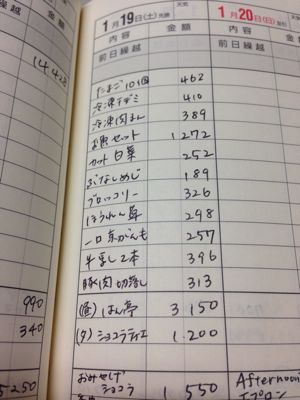 1月19日(土)先勝
天気
内容 金額
前日繰越
たまご10個 462
冷凍チヂミ 410
冷凍肉まん 389
お魚セット 1,272
カット白菜 252
ぶなしめじ 189
ブロッコリー 326
ほうれん草 298
一口京がんも 257
牛乳2本 396
豚肉切落し 313
(昼)はん亭 3,150
(夕)ショコラティエ 1,200
おみやげ
ショコラ 1,550
1月20日(日)
内容
前日繰越
Afternoon
エプロン
金額
990
340
5250